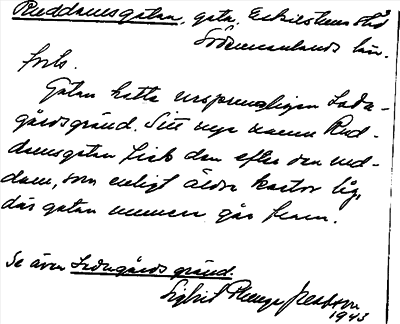 Ruddamsgatan, gata, Eskilstuna stad
Södermanlands län.
forts.
Gatan hette ursprungligen Lada-
gårdsgränd. Sitt nya namn Rud-
damsgatan fick den efter den rud-
dam, som enligt äldre kartor låg,
där gatan nummer går fram.
Se även Ladugårdsgränd.
Sigrid Persson
1943